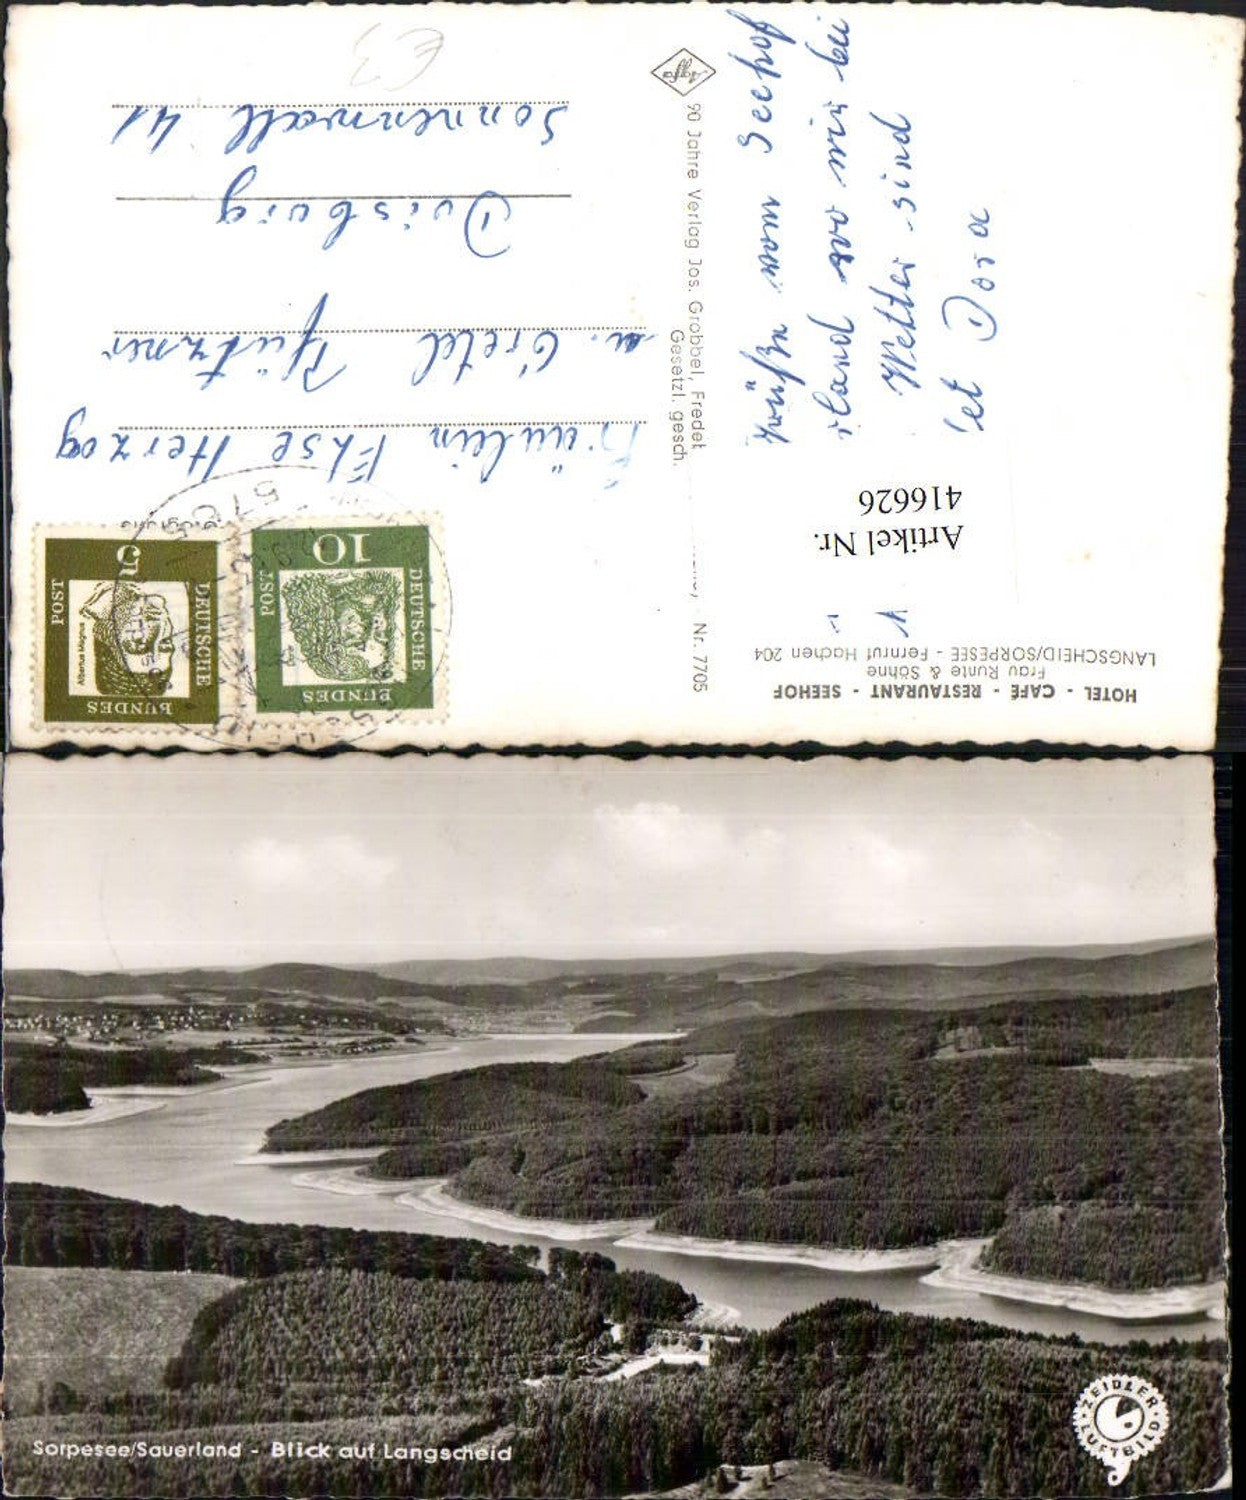 HOTEL - CAFÉ - RESTAURANT - SEEHOF
Frau Runte & Söhne
LANGSCHEID/SORPESEE - Fernruf Hachen 204
Artikel Nr.
416626
vom Seehof
wo wir bei
Wetter sind
Dora
90 Jahre Verlag Jos. Grobbel, Fredeb
Nr. 7705
Gesetzl. gesch.
Agfa
DEUTSCHE
BUNDES
POST
10
DEUTSCHE
BUNDES
POST
5
Albertus Magnus
5769
Fräulein Else Herzog
u. Gretel Pfützner
Duisburg
Sonnenwall 41
€3
Sorpesee/Sauerland - Blick auf Langscheid
ZEIDLER
LUFTBILD